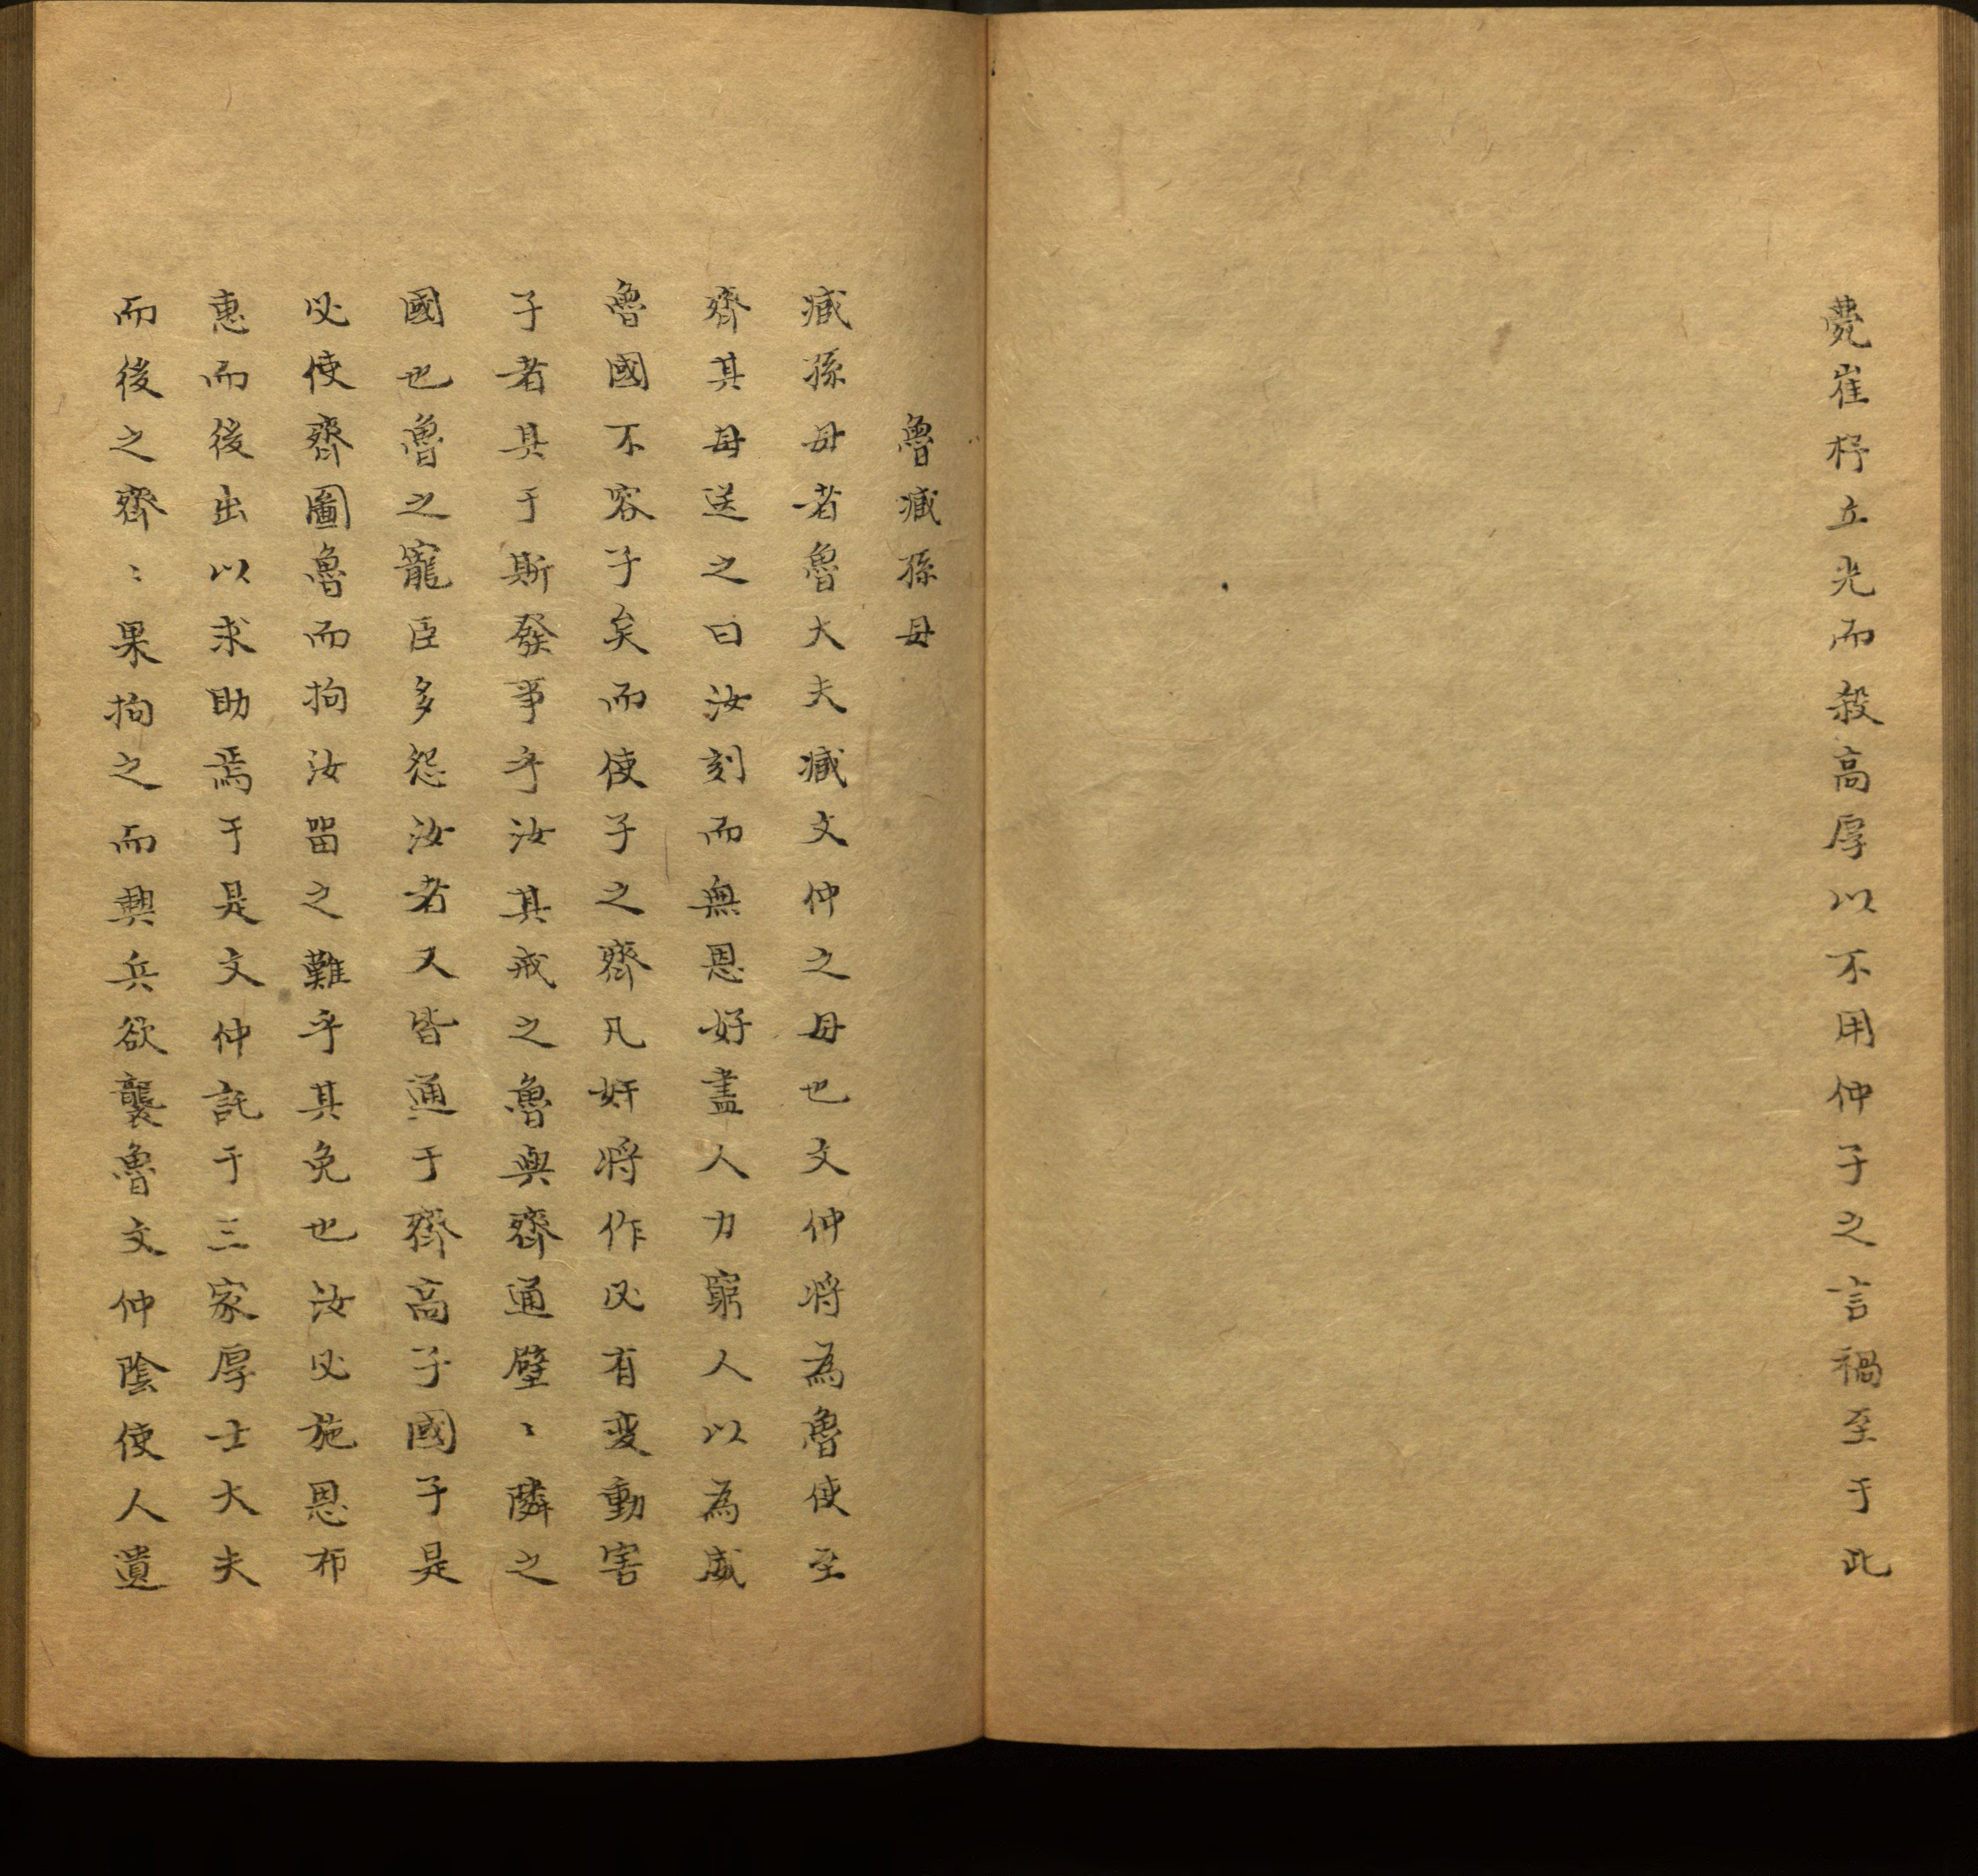 薨崔杼立光而殺高厚以不用仲子之言禍至于此
魯臧孫母
臧孫母者魯大夫臧文仲之母也文仲將為魯使至
齊其母送之曰汝刻而無恩好盡人力窮人以為威
魯國不容子矣而使子之齊凡奸將作必有变動害
子者其于斯發事乎汝其戒之魯與齊通壁〻隣之
國也魯之寵臣多怨汝者又皆通于齊高子國子是
必使齊圖魯而拘汝畱之難乎其免也汝必施恩布
惠而後出以求助焉于是文仲託于三家厚士大夫
而後之齊〻果拘之而興兵欲襲魯文仲陰使人遺